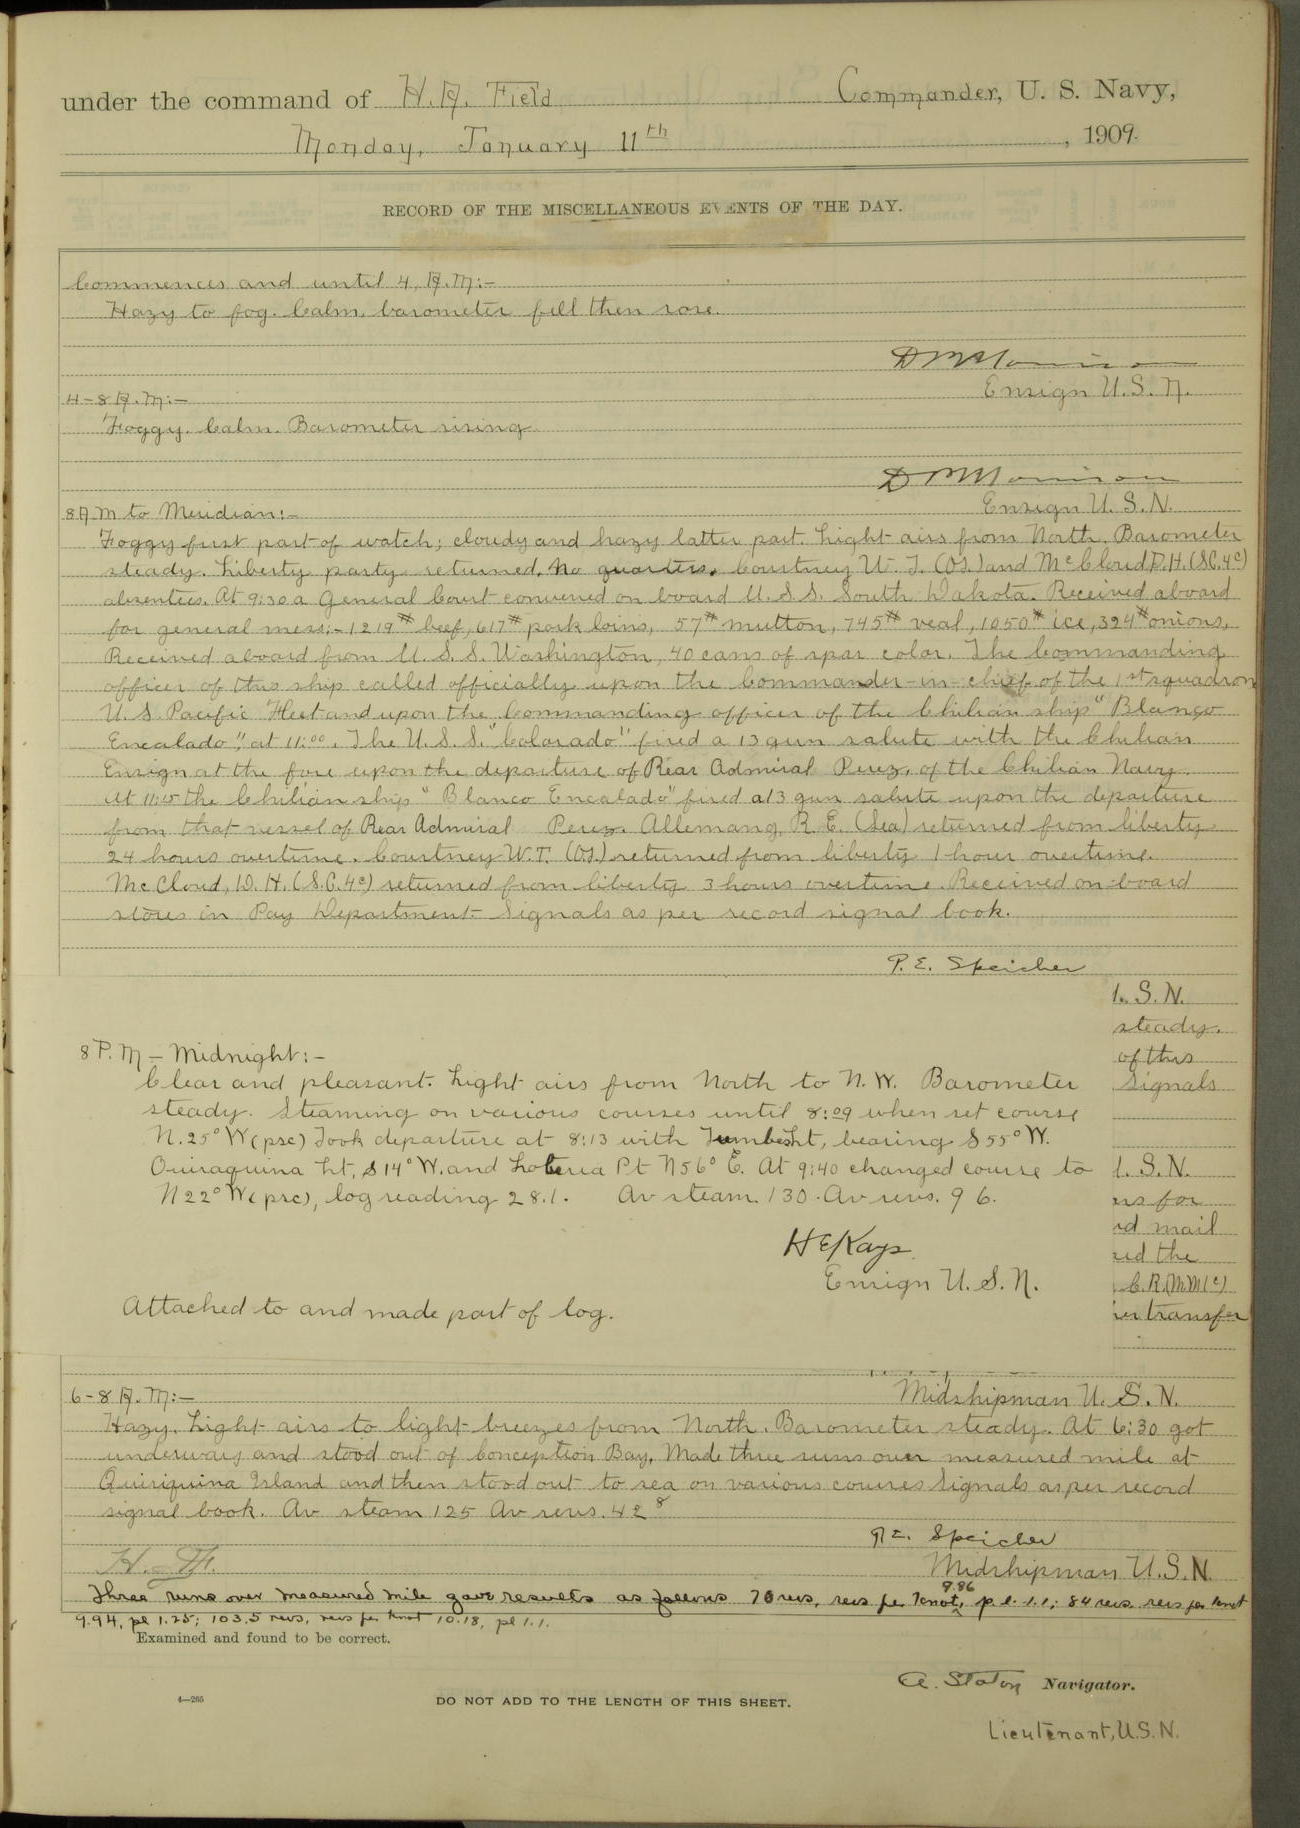 under the command of H. A. Field Commander, U. S. Navy,
Monday, January 11th, 1909.
RECORD OF THE MISCELLANEOUS EVENTS OF THE DAY.
Commences and until 4, A.M:-
Hazy to fog. Calm, barometer fell then rose.
D M Morrison
Ensign U.S.N.
4-8 A.M:-
Foggy. Calm. Barometer rising
D M Morrison
Ensign U.S.N.
8 A.M to Meridian:-
Foggy first part of watch; cloudy and hazy latter part. Light airs from North. Barometer
steady. Liberty party returned. No quarters. Courtney W. T. (OS.) and McCloud D.H. (SC.4c)
absentees. At 9:30 a General Court convened on board U.S.S. South Dakota. Received aboard
for general mess:- 1219# beef, 617# pork loins, 57# mutton, 745# veal, 1050# ice, 324# onions,
Received aboard from U.S.S. Washington, 40 cans of spar color. The Commanding
officer of this ship called officially upon the Commander-in-chief of the 1st squadron
U.S Pacific Fleet and upon the Commanding officer of the Chilian ship "Blanco
Encalado", at 11:00. The U.S.S. "Colorado" fired a 13 gun salute with the Chilian
Ensign at the fore upon the departure of Rear Admiral Perez, of the Chilian Navy.
At 11:15 the Chilian ship "Blanco Encalado" fired a 13 gun salute upon the departure
from that vessel of Rear Admiral Perez. Allemang, R. E. (Sea) returned from liberty
24 hours overtime. Courtney W.T. (OS.) returned from liberty 1 hour overtime.
McCloud, D. H. (S.C.4c) returned from liberty 3 hours overtime. Received on-board
stores in Pay Department. Signals as per record signal book.
P. E. Speicher
. S. N.
steady.
of this
Signals
8 P.M - Midnight:-
Clear and pleasant. Light airs from North to N.W. Barometer
steady. Steaming on various courses until 8:09 when set course
N.25°W (psc) Took departure at 8:13 with Tumbes Lt, bearing S 55° W.
Quiraquina Lt, S 14° W. and Loberia Pt N 56° E. At 9:40 changed course to
N 22° W (psc), log reading 28.1. Av steam 130. Av revs. 96.
H E Kays
Ensign U.S.N.
. S. N.
for
mail
the
C.R.(M.M1c)
transfer
Attached to and made part of log.
Midshipman U.S.N.
6-8 P.M:-
Hazy. Light airs to light breezes from North. Barometer steady. At 6:30 got
underway and stood out of Conception Bay. Made three runs over measured mile at
Quiriquina Island and then stood out to sea on various courses Signals as per record
signal book. Av steam 125 Av revs. 42 8
P. E. Speicher
Midshipman U.S.N.
Three runs over measured mile gave results as follows 70 revs, revs per knot, 9.86 pl. 1.1; 84 revs. revs per knot
9.94, pl 1.25; 103.5 revs, revs per knot 10.18, pl 1.1.
Examined and found to be correct.
A. Staton Navigator.
4—265
DO NOT ADD TO THE LENGTH OF THIS SHEET.
Lieutenant, U.S.N.